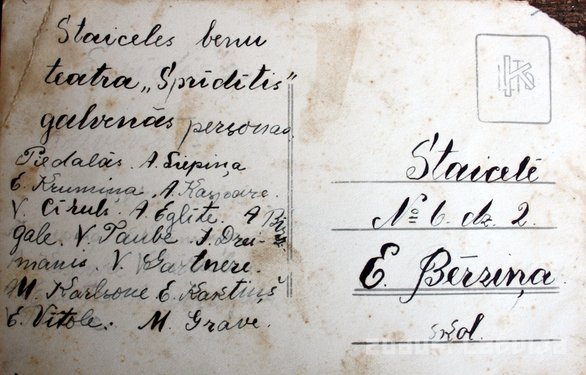 Staiceles benu
teatra „Sprīdītis”
galvenās personas
Piedalās. A. Liepiņa
E. Krumiņa. A. Kaspare.
V. Cīruls. A. Eglīte. A
gale. V. Taube. J. Drei-
manis. V. Gartnere.
M. Karlsone E. Kaktiņš
E. Vītole. M. Grave.
Staicelē
№ 6. dz. 2.
E. Bērziņa
skol.